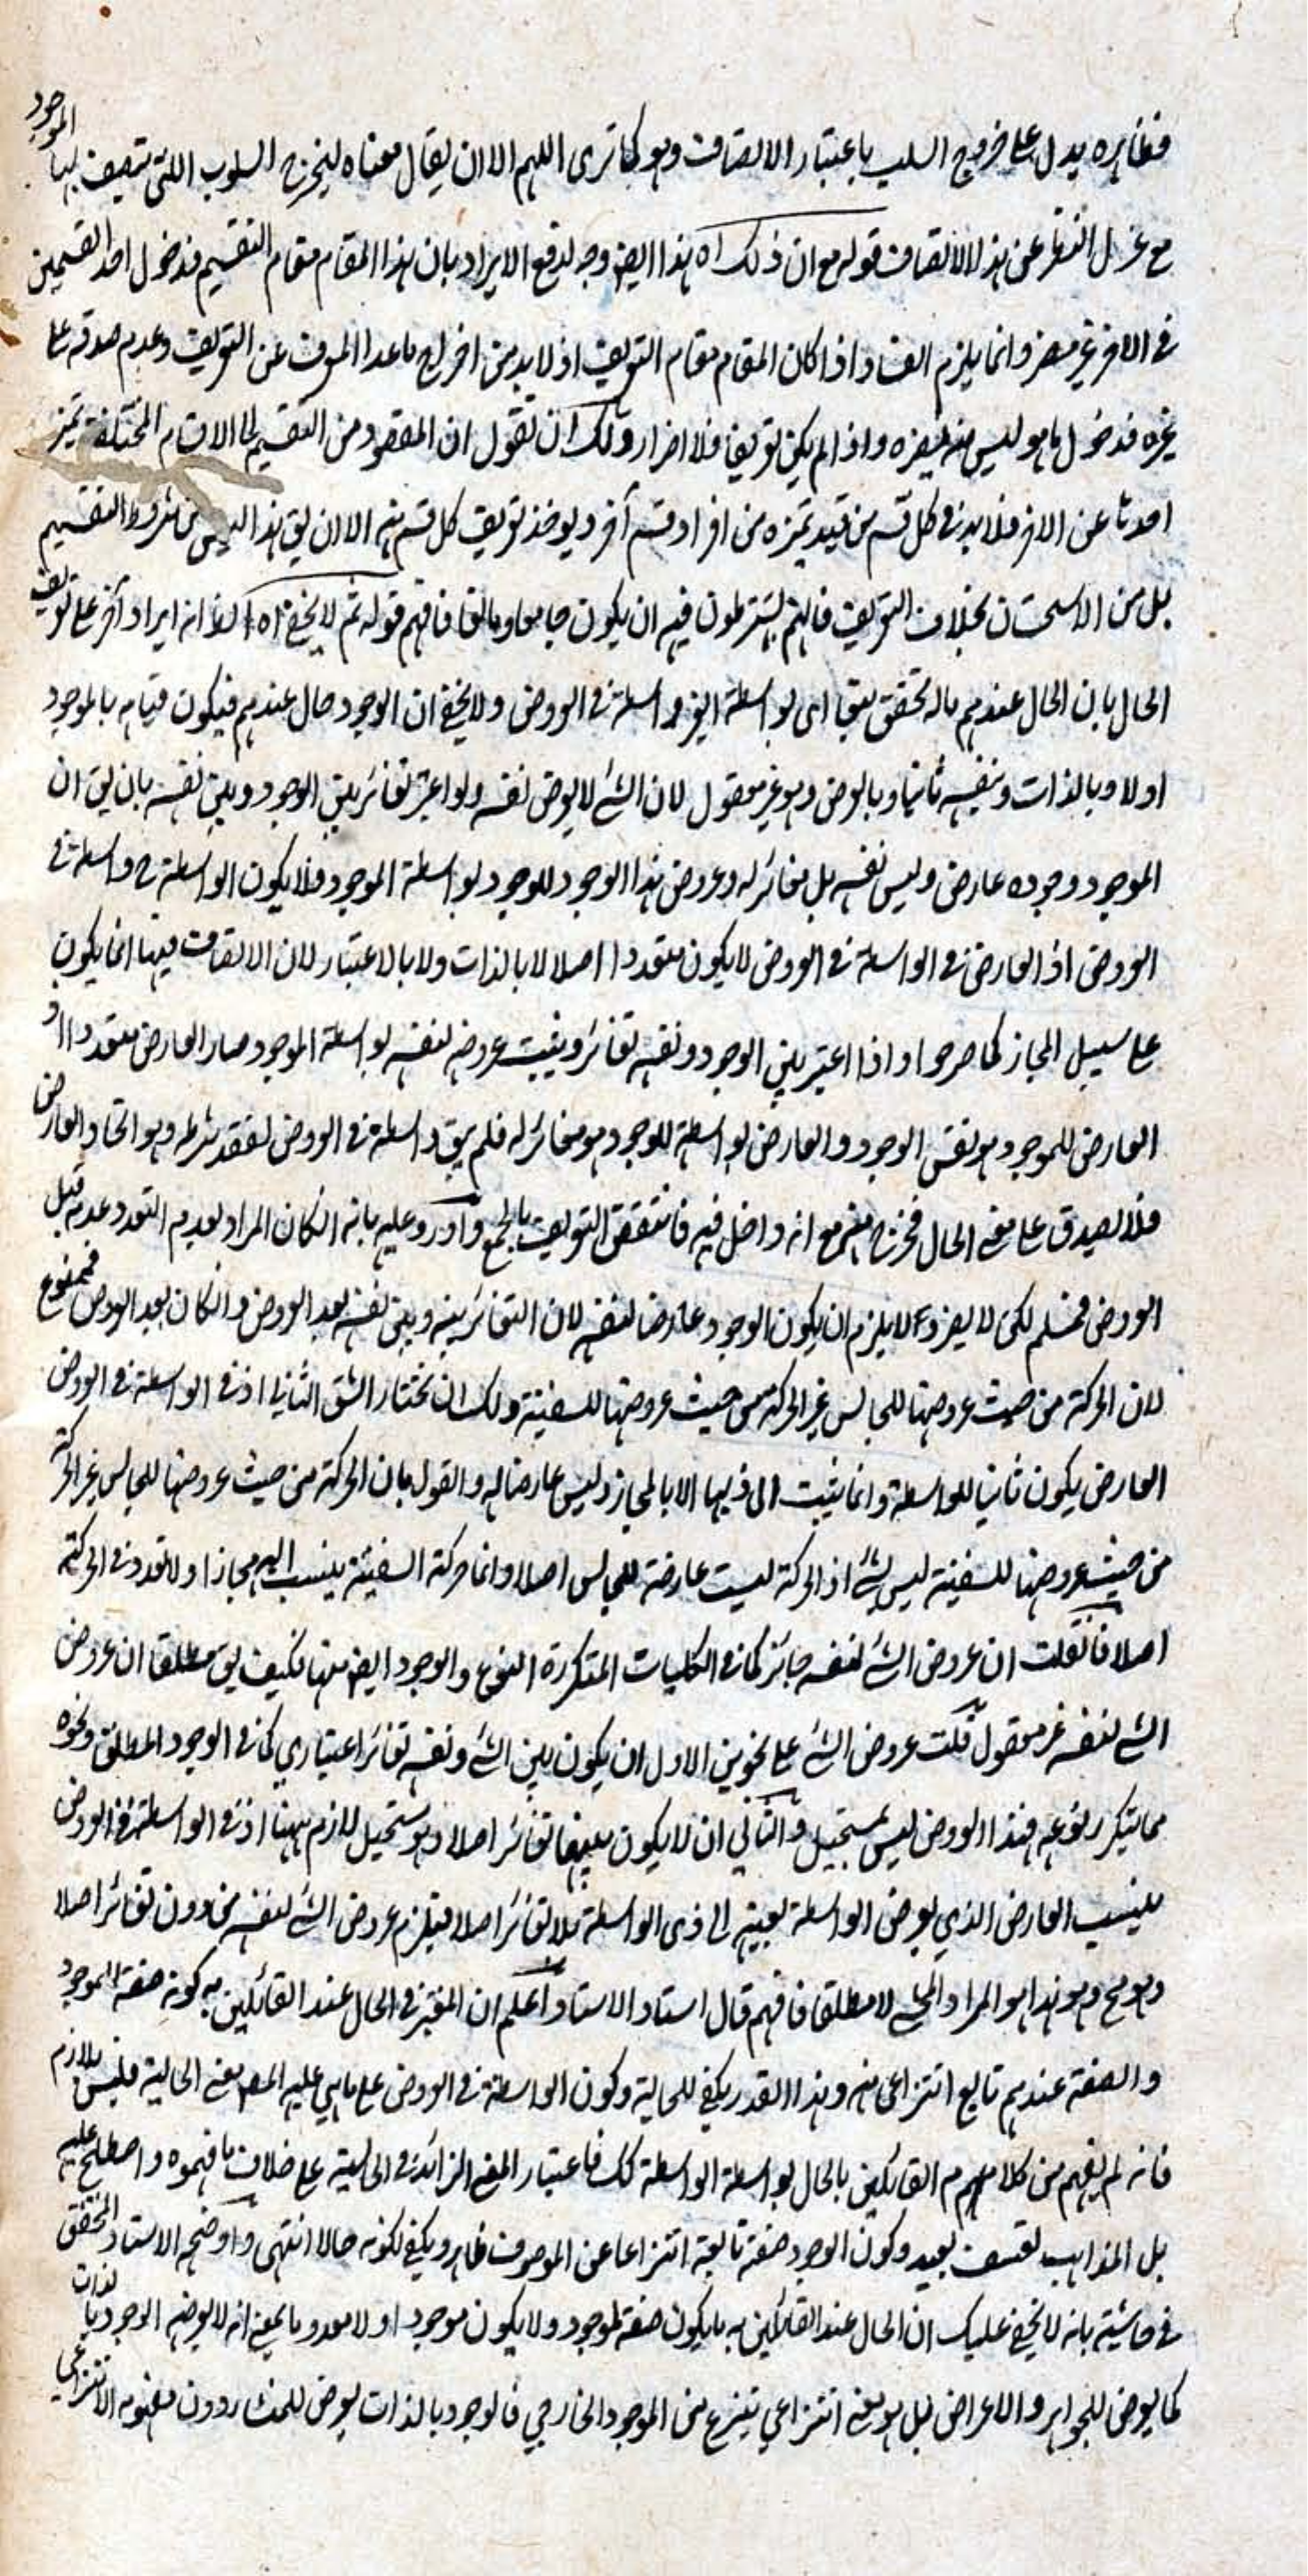 فظاهره يدل على خروج السلب باعتبار الاتصاف وهو كما ترى اللهم الا ان يقال معناه ليخرج السلوب اللتي تتصف بها الموجود
مع عزل النظر عن هذا الاتصاف قوله مع ان ذلك اه هذا ايضا وجه لدفع الايراد بان هذا المقام مقام التقسيم فدخول احد القسمين
في الاخر غير مضر وانما يلزم الفساد اذا كان المقام مقام التعريف اذ لا بد من اخراج ما عدا المعرف عن التعريف وعدم صدقه على
غيره فدخول ما هو ليس منه يضره واذا لم يكن تعريفا فلا اضرار ولك ان تقول ان المقصود من التقسيم الى الاقسام المختلفة تميز
احدها عن الاخر فلا بد في كل قسم من قيد تميزه من افراد قسم آخر ويوخذ تعريف كل قسم منه الا ان يق هذا ليس من شروط التقسيم
بل من الاستحسان بخلاف التعريف فانهم يشترطون فيه ان يكون جامعا ومانعا فافهم قوله ثم لا يخفى اه انه ايراد آخر على تعريف
الحال بان الحال عندهم ماله تحقق تبعا اى بواسطة ايضا واسطة في العروض ولا يخفى ان الوجود حال عندهم فيكون قيامه بالموجود
اولا وبالذات وبنفسه ثانيا وبالعرض وهو غير معقول لان الشئ لا يعرض نفسه ولو اعتبر تغائر بين الوجود وبين نفسه بان يق ان
الموجود وجوده عارض وليس نفسه بل مغائر له وعروض هذا الوجود للوجود بواسطة الموجود فلا يكون الواسطة ح واسطة في
العروض اذ العارض في الواسطة في العروض لا يكون متعددا اصلا لا بالذات ولا بالاعتبار لان الاتصاف فيها انما يكون
على سبيل المجاز كما صرحوا واذا اعتبر بين الوجود ونفسه تغائر ويثبت عروضه لنفسه بواسطة الموجود صار العارض متعددا اذ
العارض للموجود هو نفس الوجود والعارض بواسطة للوجود هو مغائر له فلم يبق واسطة في العروض لفقد شرطه وهو اتحاد العارض
فلا يصدق على معنى الحال فخرج منه مع انه داخل فيه فانتقض التعريف بالجمع واورد عليه بانه ان كان المراد بعدم التعدد عدمه قبل
العروض فمسلم لكن لا يضر اذ لا يلزم ان يكون الوجود عارضا لنفسه لان التغائر بينه وبين نفسه بعد العروض وان كان بعد العروض فممنوع
لان الحركة من حيث عروضها للجالس غير الحركة من حيث عروضها للسفينة ولك ان تختار الشق الثاني اذ في الواسطة في العروض
العارض يكون ثابتا للواسطة وانما يثبت الى ذيها الا بالمجاز وليس عارضا له والقول بان الحركة من حيث عروضها للجالس غير الحركة
من حيث عروضها للسفينة ليس بشئ اذ الحركة ليست عارضة للجالس اصلا وانما حركة السفينة ينسب اليه مجازا ولا تعدد في الحركة
اصلا فان قلت ان عروض الشئ لنفسه جائز كما في الكليات المتكررة النوع والوجود ايضا منها فكيف يق مطلقا ان عروض
الشئ لنفسه غير معقول قلت عروض الشئ على نحوين الاول ان يكون بين الشئ ونفسه تغائر اعتباري كما في الوجود المطلق ونحوه
مما يتكرر نوعه فهذا العروض ليس بمستحيل والثاني ان لا يكون بينهما تغائر اصلا وهو مستحيل لازم ههنا اذ في الواسطة في العروض
ينسب العارض الذي يعرض الواسطة بعينه الى ذى الواسطة بلا تغائر اصلا فيلزم عروض الشئ لنفسه من دون تغائر اصلا
وهو مح وهو هذا هو المراد بالمحال لا مطلقا فافهم قال استاد الاستاد اعلم ان المعتبر في الحال عند القائلين به كونه صفة الموجود
والصفة عندهم تابع انتزاعى منه وهذا القدر يكفى للحالية وكون الواسطة في العروض على ما هي عليه المص معنى الحالية فليس بلازم
فانه لم يفهم من كلامهم القائلين بالحال بواسطة الواسطة كك فاعتبار المعنى الزائد في الحالية على خلاف ما فهموه واصطلح عليه
بل المذاهب تعسف بعيد وكون الوجود صفة تابعة انتزاعا عن الموصوف ظاهر ويكفى لكونه حالا انتهى واوضحه الاستاد المحقق
في حاشيته بانه لا يخفى عليك ان الحال عند القائلين به ما يكون صفة لموجود ولا يكون موجودا ولا معدوما بمعنى انه لا يعرضه الوجود بالذات
كما يعرض للجواهر والاعراض بل هو معنى انتزاعي ينتزع من الموجود الخارجي فالوجود بالذات يعرض للمنشأ دون مفهومه الانتزاعي